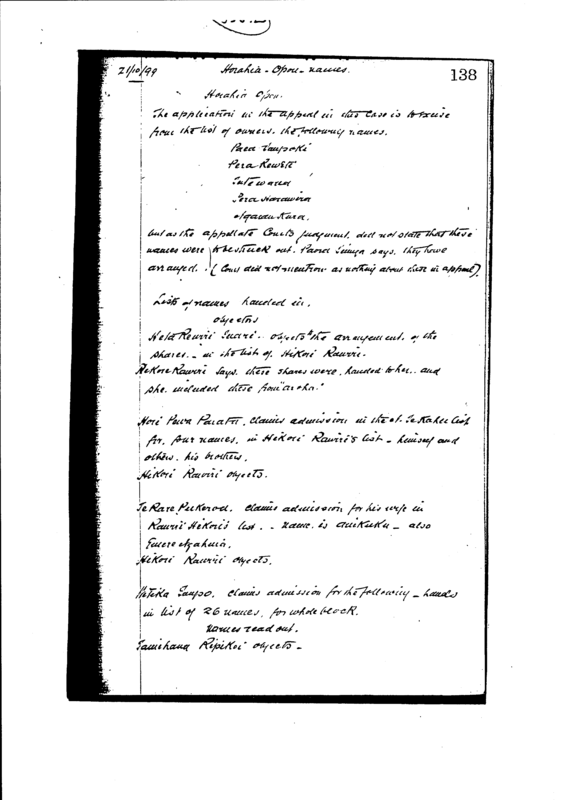 21/10/99 Horahia - Opou - names. 138
Horahia Opou.
The application in the appeal in this case is to excise
from the list of owners, the following names.
Paea Taupoki
Pera Rewiti
Pera Harawira
but as the appellate Courts judgment, did not state that these
names were to be struck out. says, they have
arranged. (Court did not mention as nothing about those in appeal).
Lists of names handed in.
objectors
objects to the arrangement of the
shares. - in the list of Hikori Rawiri.
Rawiri says, these shares were handed to her, and
she included these from "aroha."
Hori claims admission in the list
for four names, in Hikori Rawiri's list - himself and
others, his brothers.
Hikori Rawiri objects.
Te Rare claims admission for his wife in
Rawiri Hikori's list. - name is - also
Hikori Rawiri objects.
Taupo, claims admission for the following - hands
in list of 26 names, for whole block.
names read out.
Tamihana Ripikoi objects -